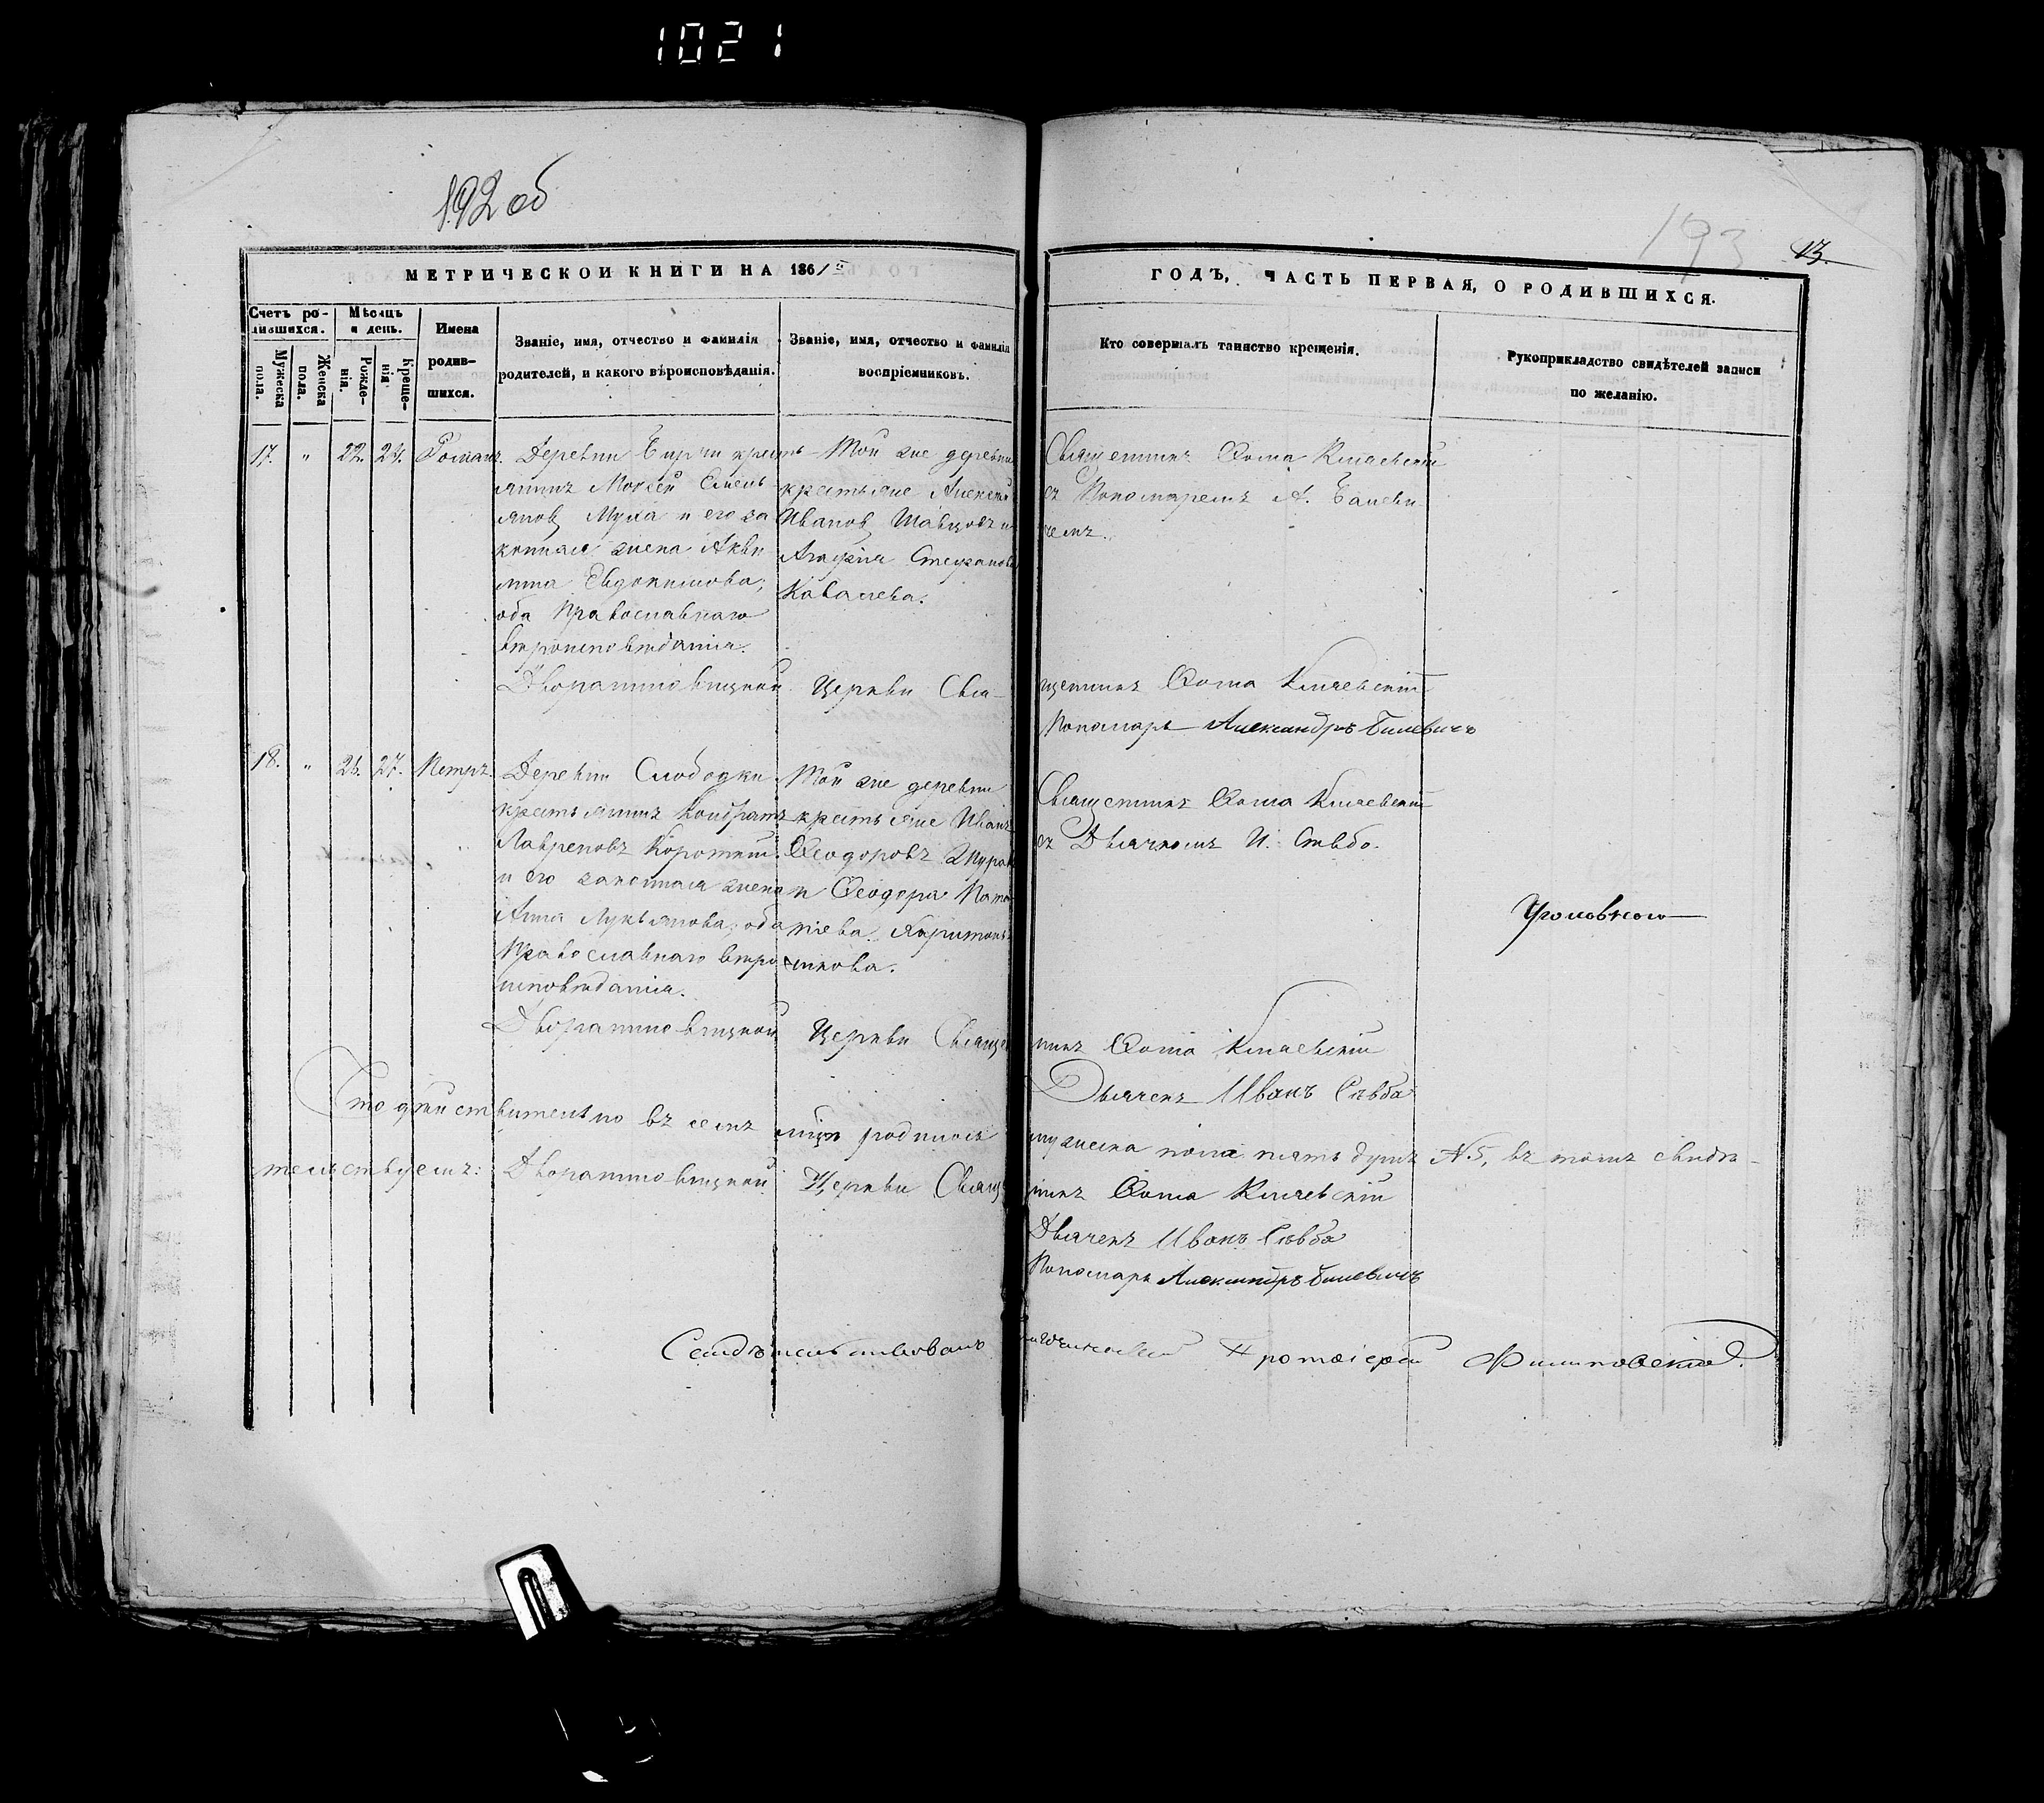 1021
192 об
193
13.
МЕТРИЧЕСКОЙ КНИГИ НА 1861й
ГОДЪ, ЧАСТЬ ПЕРВАЯ, О РОДИВШИХСЯ.
Счетъ ро-
дившихся.
Мужеска
пола.
Женска
пола.
Мѣсяцъ
и день.
Рожде-
нія.
Креще-
нія.
Имена
родив-
шихся.
Званіе, имя, отчество и фамилія
родителей, и какого вѣроисповѣданія.
Званіе, имя, отчество и фамилія
воспріемниковъ.
Кто совершалъ таинство крещенія.
Рукоприкладство свидѣтелей записи
по желанію.
17. " 22. 24. Романъ.
Деревни кресть-
янинъ Мойсей Емель-
яновъ Муха и его за
конная жена Аки
лина Евдокимова;
оба Православнаго
вѣроисповѣданія.
Той же деревни
крестьяне Алексѣй
Ивановъ Шавцовъ и
Агафія Стефанова
Ковалева.
Священникъ Ѳома Клячевскій
съ Пономаремъ А. Билеви
чемъ.
Церкви Свя-
щенникъ Ѳома Клячевскій
Пономарь Александръ Билевичъ
18. " 27. Петръ.
Деревни Слободки
крестьянинъ Кондратъ
Лавреновъ Короткій
и его законная жена
Анна Лукьянова, оба
Православнаго вѣро
исповѣданія.
Той же деревни
крестьяне Иванъ
Ѳеодоровъ
и Ѳеодора
Священникъ Ѳома Клячевскій
съ Дьячкомъ И. Сѣвбо.
Церкви Священ
никъ Ѳома Клячевскій
Дьячекъ Иванъ Сѣвба
Что дѣйствительно въ семъ мѣсяцѣ родилось мужеска пола пять душъ №5, въ томъ свидѣ-
тельствуемъ: Церкви Священ
никъ Ѳома Клячевскій
Дьячекъ Иванъ Сѣвба
Пономарь Александръ Билевичъ
Свидѣтельствовалъ Протоіерей